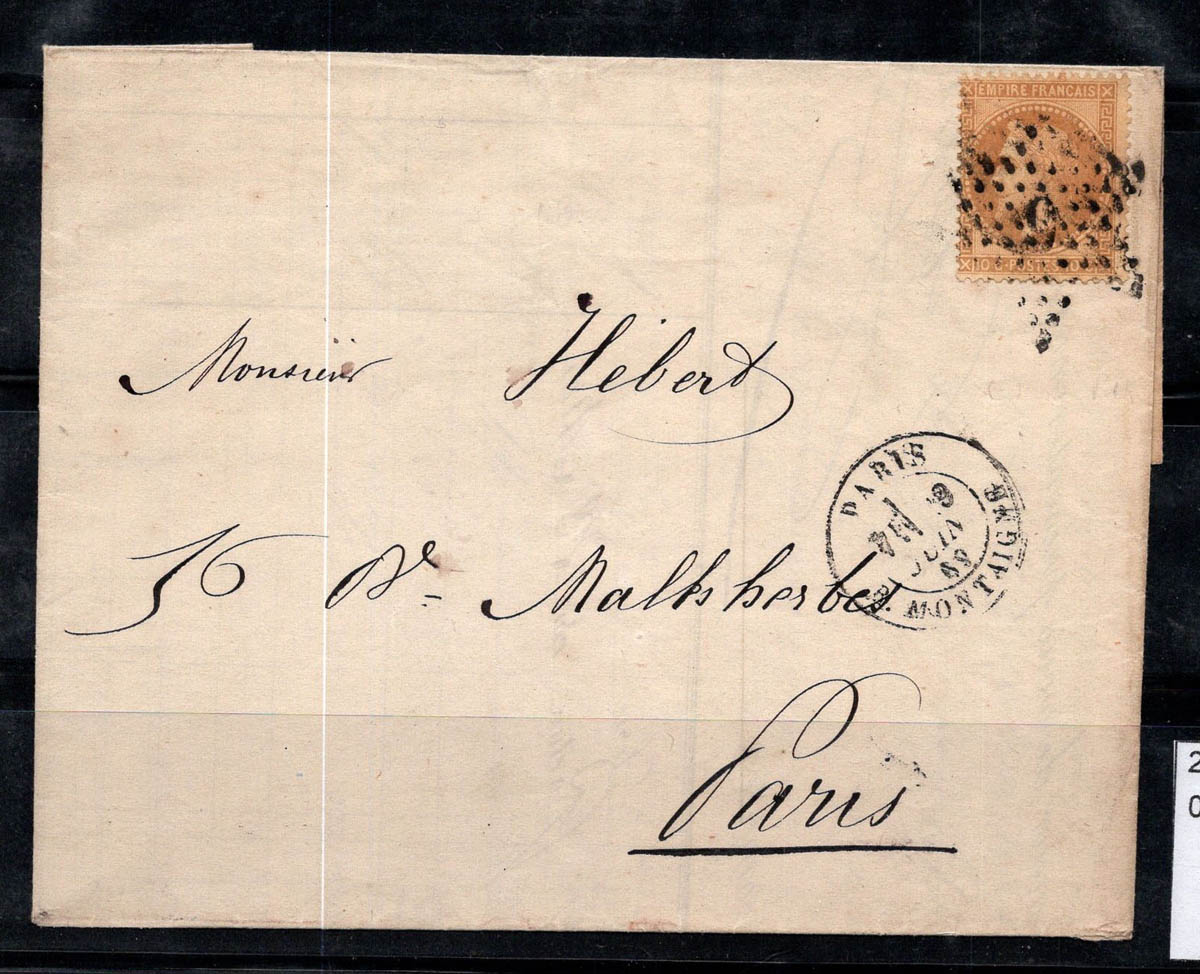 EMPIRE FRANCAIS
9
10 C. POSTES 10 C.
Monsieur Hébert
PARIS
3
JUIN
69
R. MONTAIGNE
56 Bd Malesherbes.
Paris
2
0